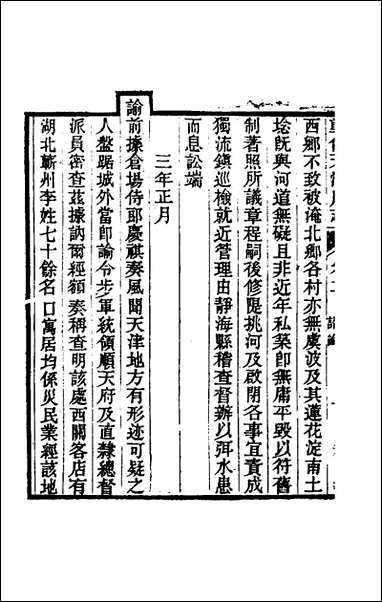 西鄉不致被淹北鄉各村亦無慮波及其蓮花淀南土
埝旣與河道無礙且非近年私築卽無庸平毀以符舊
制著照所議章程嗣後修隄挑河及啟閉各事宜責成
獨流鎮巡檢就近管理由靜海縣稽查督辦以弭水患
而息訟端
三年正月
諭前據倉場侍郎慶祺奏風聞天津地方有形迹可疑之
人盤踞城外當卽諭令步軍統領順天府及直隸總督
派員密查茲據訥爾經額奏稱查明該處西關客店有
湖北蘄州李姓七十餘名口寓居均係災民業經該地